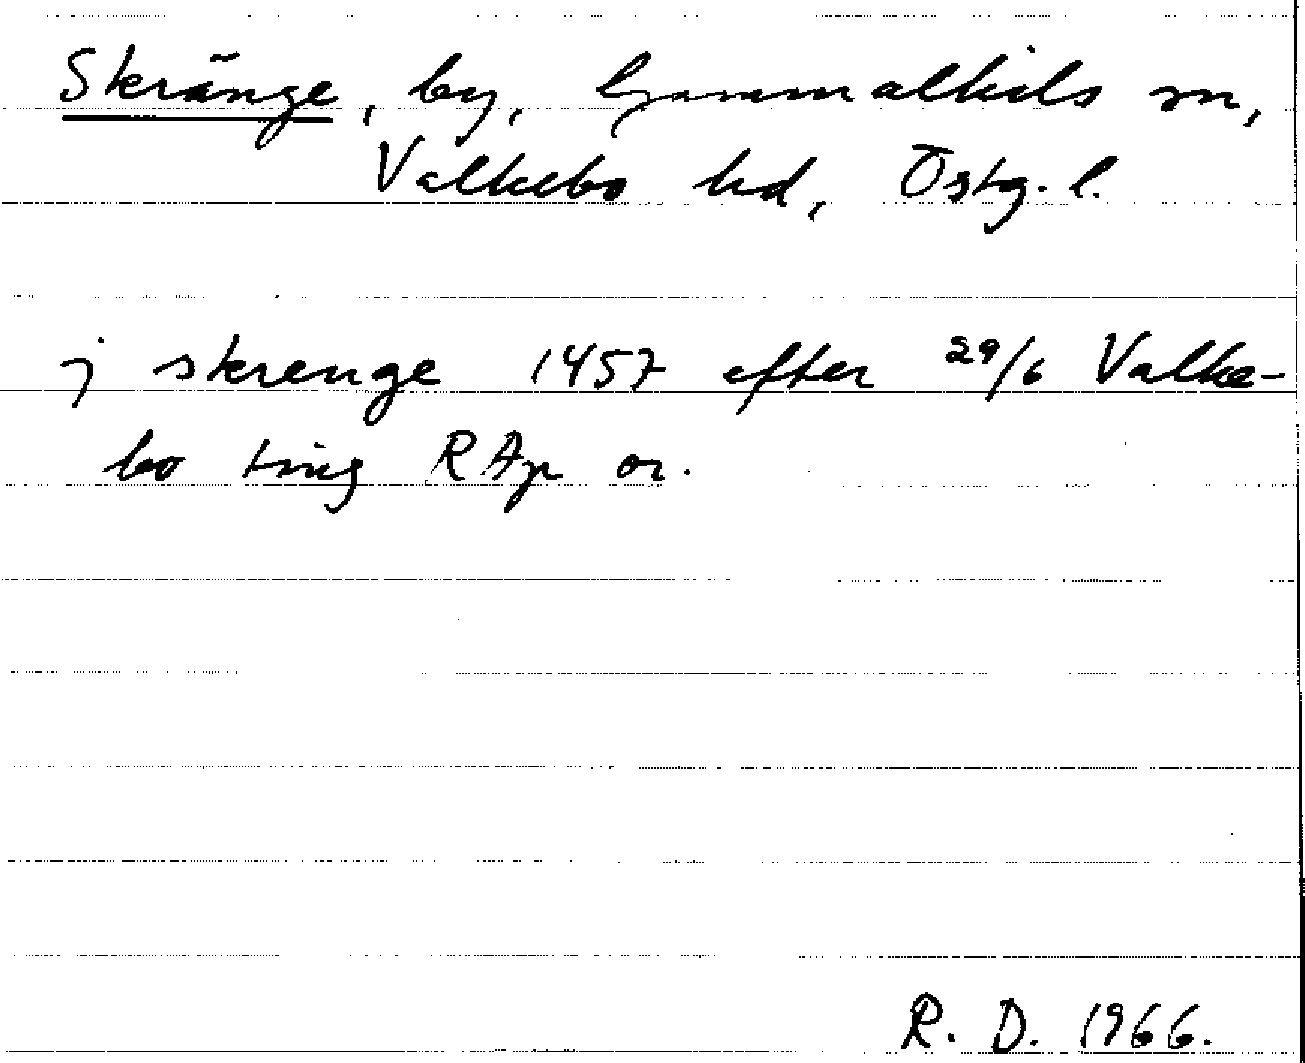 Skränge, by, Gammalkils sn,
Valkebo hd, Östg. l.
j skrenge 1457 efter 29/6 Valke-
bo ting RAp or.
R. D. 1966.